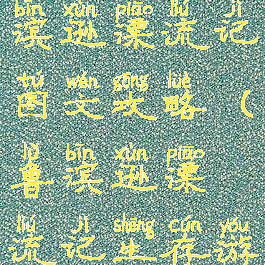 bīn xùn piāo liú jì
滨逊漂流记
tú wén gōng lüè
图文攻略（
lǔ bīn xùn piāo
鲁滨逊漂
liú jì shēng cún yóu
流记生存游